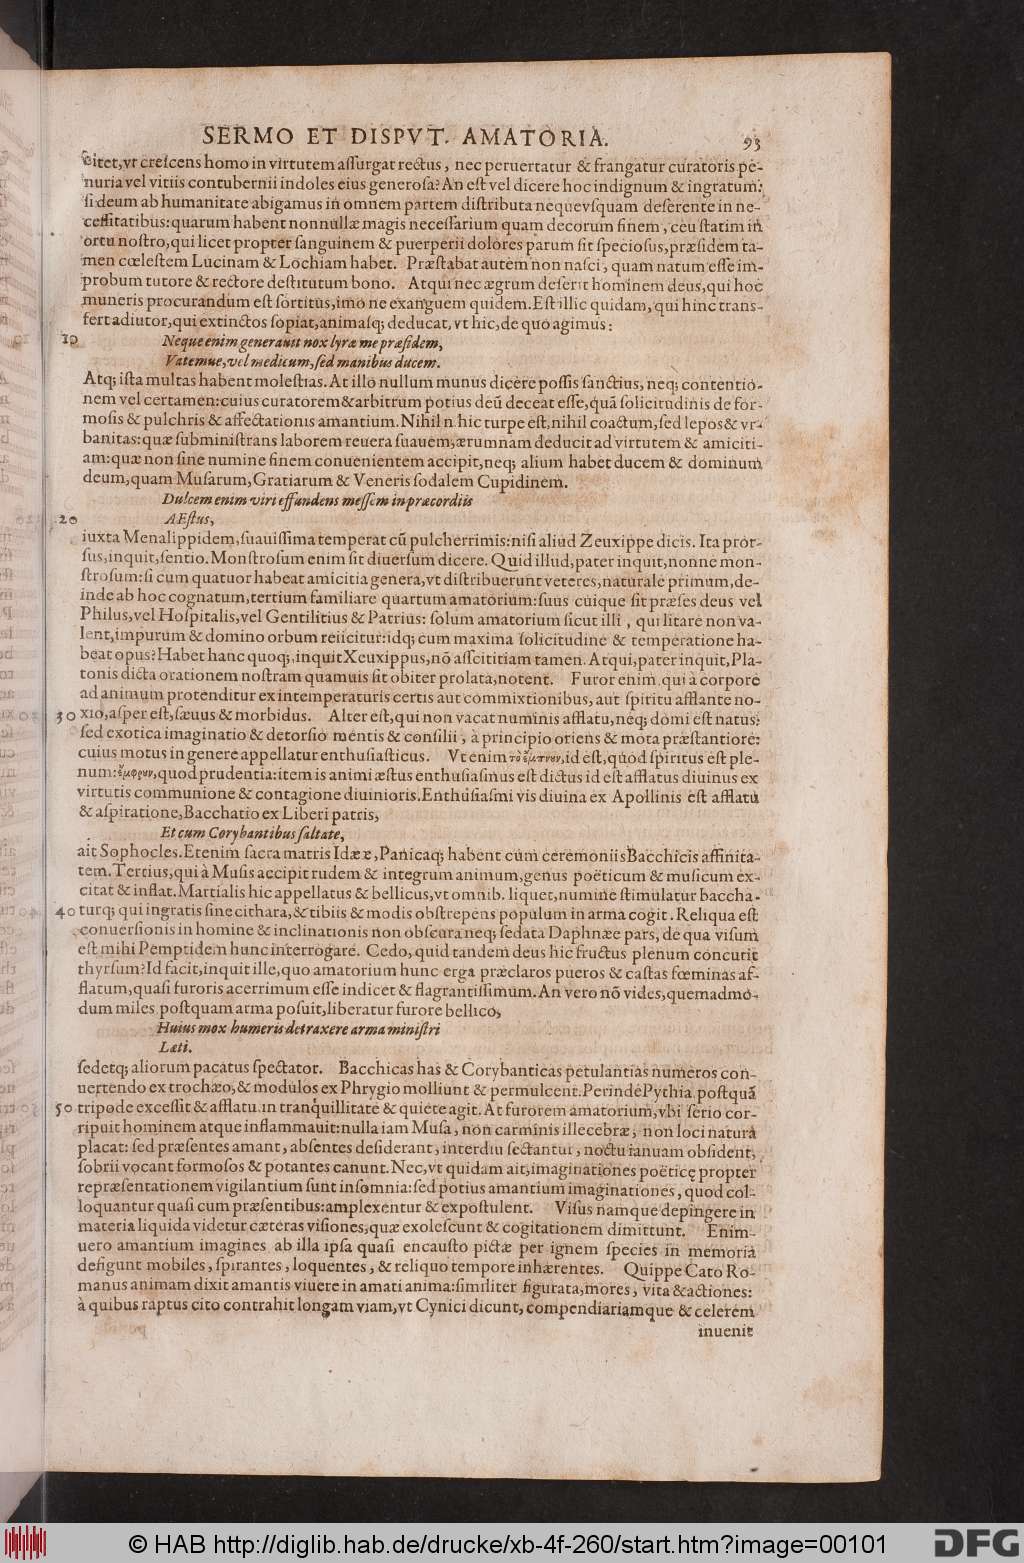 SERMO ET DISPVT. AMATORIA. 93
citet,vt crescens homo in virtutem assurgat rectus, nec peruertatur & frangatur curatoris pe-
nuria vel vitiis contubernii indoles eius generosa? An est vel dicere hoc indignum & ingratum:
si deum ab humanitate abigamus in omnem partem distributa nequevsquam deserente in ne-
cessitatibus: quarum habent nonnullæ magis necessarium quam decorum finem, ceu statim in
ortu nostro, qui licet propter sanguinem & puerperii dolores parum sit speciosus, præsidem ta-
men cœlestem Lucinam & Lochiam habet. Præstabat autem non nasci, quam natum esse im-
probum tutore & rectore destitutum bono. Atqui nec ægrum deserit hominem deus, qui hoc
muneris procurandum est sortitus, imo ne exanguem quidem. Est illic quidam, qui hinc trans-
fert adiutor, qui extinctos sopiat, animasq; deducat, vt hic, de quo agimus:
10 Neque enim generauit nox lyræ me præsidem,
Vatemue, vel medicum, sed manibus ducem.
Atq; ista multas habent molestias. At illo nullum munus dicere possis sanctius, neq; contentio-
nem vel certamen: cuius curatorem & arbitrum potius deū deceat esse, quā solicitudinis de for-
mosis & pulchris & affectationis amantium. Nihil n hic turpe est, nihil coactum, sed lepos & vr-
banitas: quæ subministrans laborem reuera suauem, ærumnam deducit ad virtutem & amiciti-
am: quæ non sine numine finem conuenientem accipit, neq; alium habet ducem & dominum
deum, quam Musarum, Gratiarum & Veneris sodalem Cupidinem.
Dulcem enim viri effundens messem in præcordiis
20 AEstus,
iuxta Menalippidem, suauissima temperat cū pulcherrimis: nisi aliud Zeuxippe dicis. Ita pror-
sus, inquit, sentio. Monstrosum enim sit diuersum dicere. Quid illud, pater inquit, nonne mon-
strosum: si cum quatuor habeat amicitia genera, vt distribuerunt veteres, naturale primum, de-
inde ab hoc cognatum, tertium familiare quartum amatorium: suus cuique sit præses deus vel
Philus, vel Hospitalis, vel Gentilitius & Patrius: solum amatorium sicut illi, qui litare non va-
lent, impurum & domino orbum reiicitur: idq; cum maxima solicitudine & temperatione ha-
beat opus? Habet hanc quoq;, inquit Xeuxippus, nō asscititiam tamen. Atqui, pater inquit, Pla-
tonis dicta orationem nostram quamuis sit obiter prolata, notent. Furor enim qui à corpore
ad animum protenditur ex intemperaturis certis aut commixtionibus, aut spiritu afflante no-
30 xio, asper est, sæuus & morbidus. Alter est, qui non vacat numinis afflatu, neq; domi est natus:
sed exotica imaginatio & detorsio mentis & consilii, à principio oriens & mota præstantiore:
cuius motus in genere appellatur enthusiasticus. Vt enim τὸ ἔμπνουν, id est, quod spiritus est ple-
num: ἔμφρον, quod prudentia: item is animi æstus enthusiasmus est dictus id est afflatus diuinus ex
virtutis communione & contagione diuinioris. Enthusiasmi vis diuina ex Apollinis est afflatu
& aspiratione, Bacchatio ex Liberi patris,
Et cum Corybantibus saltate,
ait Sophocles. Etenim sacra matris Idææ, Panicaq; habent cum ceremoniis Bacchicis affinita-
tem. Tertius, qui à Musis accipit rudem & integrum animum, genus poëticum & musicum ex-
citat & inflat. Martialis hic appellatus & bellicus, vt omnib. liquet, numine stimulatur baccha-
40 turq; qui ingratis sine cithara, & tibiis & modis obstrepens populum in arma cogit. Reliqua est
conuersionis in homine & inclinationis non obscura neq; sedata Daphnæe pars, de qua visum
est mihi Pemptidem hunc interrogare. Cedo, quid tandem deus hic fructus plenum concutit
thyrsum? Id facit, inquit ille, quo amatorium hunc erga præclaros pueros & castas fœminas af-
flatum, quasi furoris acerrimum esse indicet & flagrantissimum. An vero nō vides, quemadmo-
dum miles postquam arma posuit, liberatur furore bellico,
Huius mox humeris detraxere arma ministri
Læti.
sedetq; aliorum pacatus spectator. Bacchicas has & Corybanticas petulantias numeros con-
uertendo ex trochæo, & modulos ex Phrygio molliunt & permulcent. Perinde Pythia postquā
50 tripode excessit & afflatu in tranquillitate & quiete agit. At furorem amatorium, vbi serio cor-
ripuit hominem atque inflammauit: nulla iam Musa, non carminis illecebræ, non loci natura
placat: sed præsentes amant, absentes desiderant, interdiu sectantur, noctu ianuam obsident,
sobrii vocant formosos & potantes canunt. Nec, vt quidam ait, imaginationes poëticę propter
repræsentationem vigilantium sunt insomnia: sed potius amantium imaginationes, quod col-
loquantur quasi cum præsentibus: amplexentur & expostulent. Visus namque depingere in
materia liquida videtur cæteras visiones, quæ exolescunt & cogitationem dimittunt. Enim-
uero amantium imagines ab illa ipsa quasi encausto pictæ per ignem species in memoria
defigunt mobiles, spirantes, loquentes, & reliquo tempore inhærentes. Quippe Cato Ro-
manus animam dixit amantis viuere in amati anima: similiter figurata, mores, vita & actiones:
à quibus raptus cito contrahit longam viam, vt Cynici dicunt, compendiariamque & celerem
inuenit
© HAB http://diglib.hab.de/drucke/xb-4f-260/start.htm?image=00101
DFG